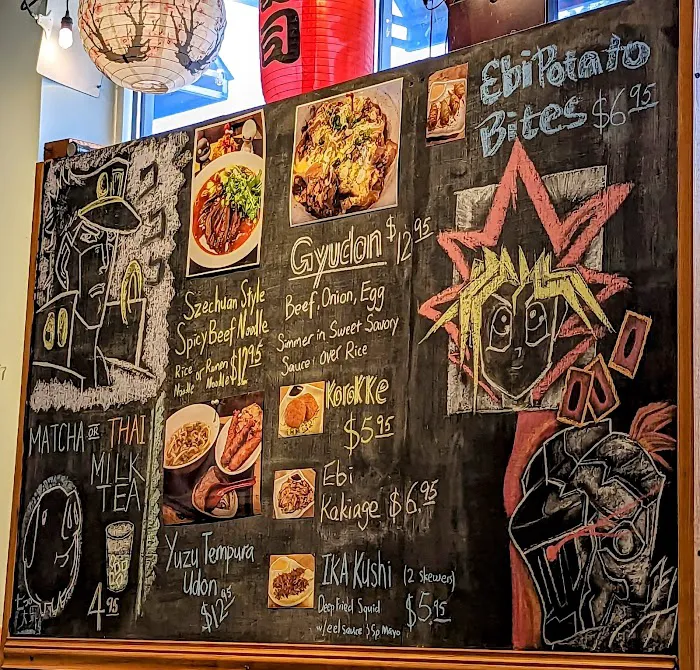 司
Ebi Potato
Bites $6.95
Gyudon $12.95
Beef, Onion, Egg
Simmer in Sweet Savory
Sauce; over Rice
Szechuan Style
Spicy Beef Noodle
Rice or Ramen
Noodle or Noodle $12.95
Korokke
$5.95
MATCHA OR THAI
MILK
TEA
4.95
Ebi
Kakiage $6.95
Yuzu Tempura
Udon
$12.95
IKA Kushi (2 skewers)
Deep Fried Squid $5.95
w/eel sauce & Sp Mayo